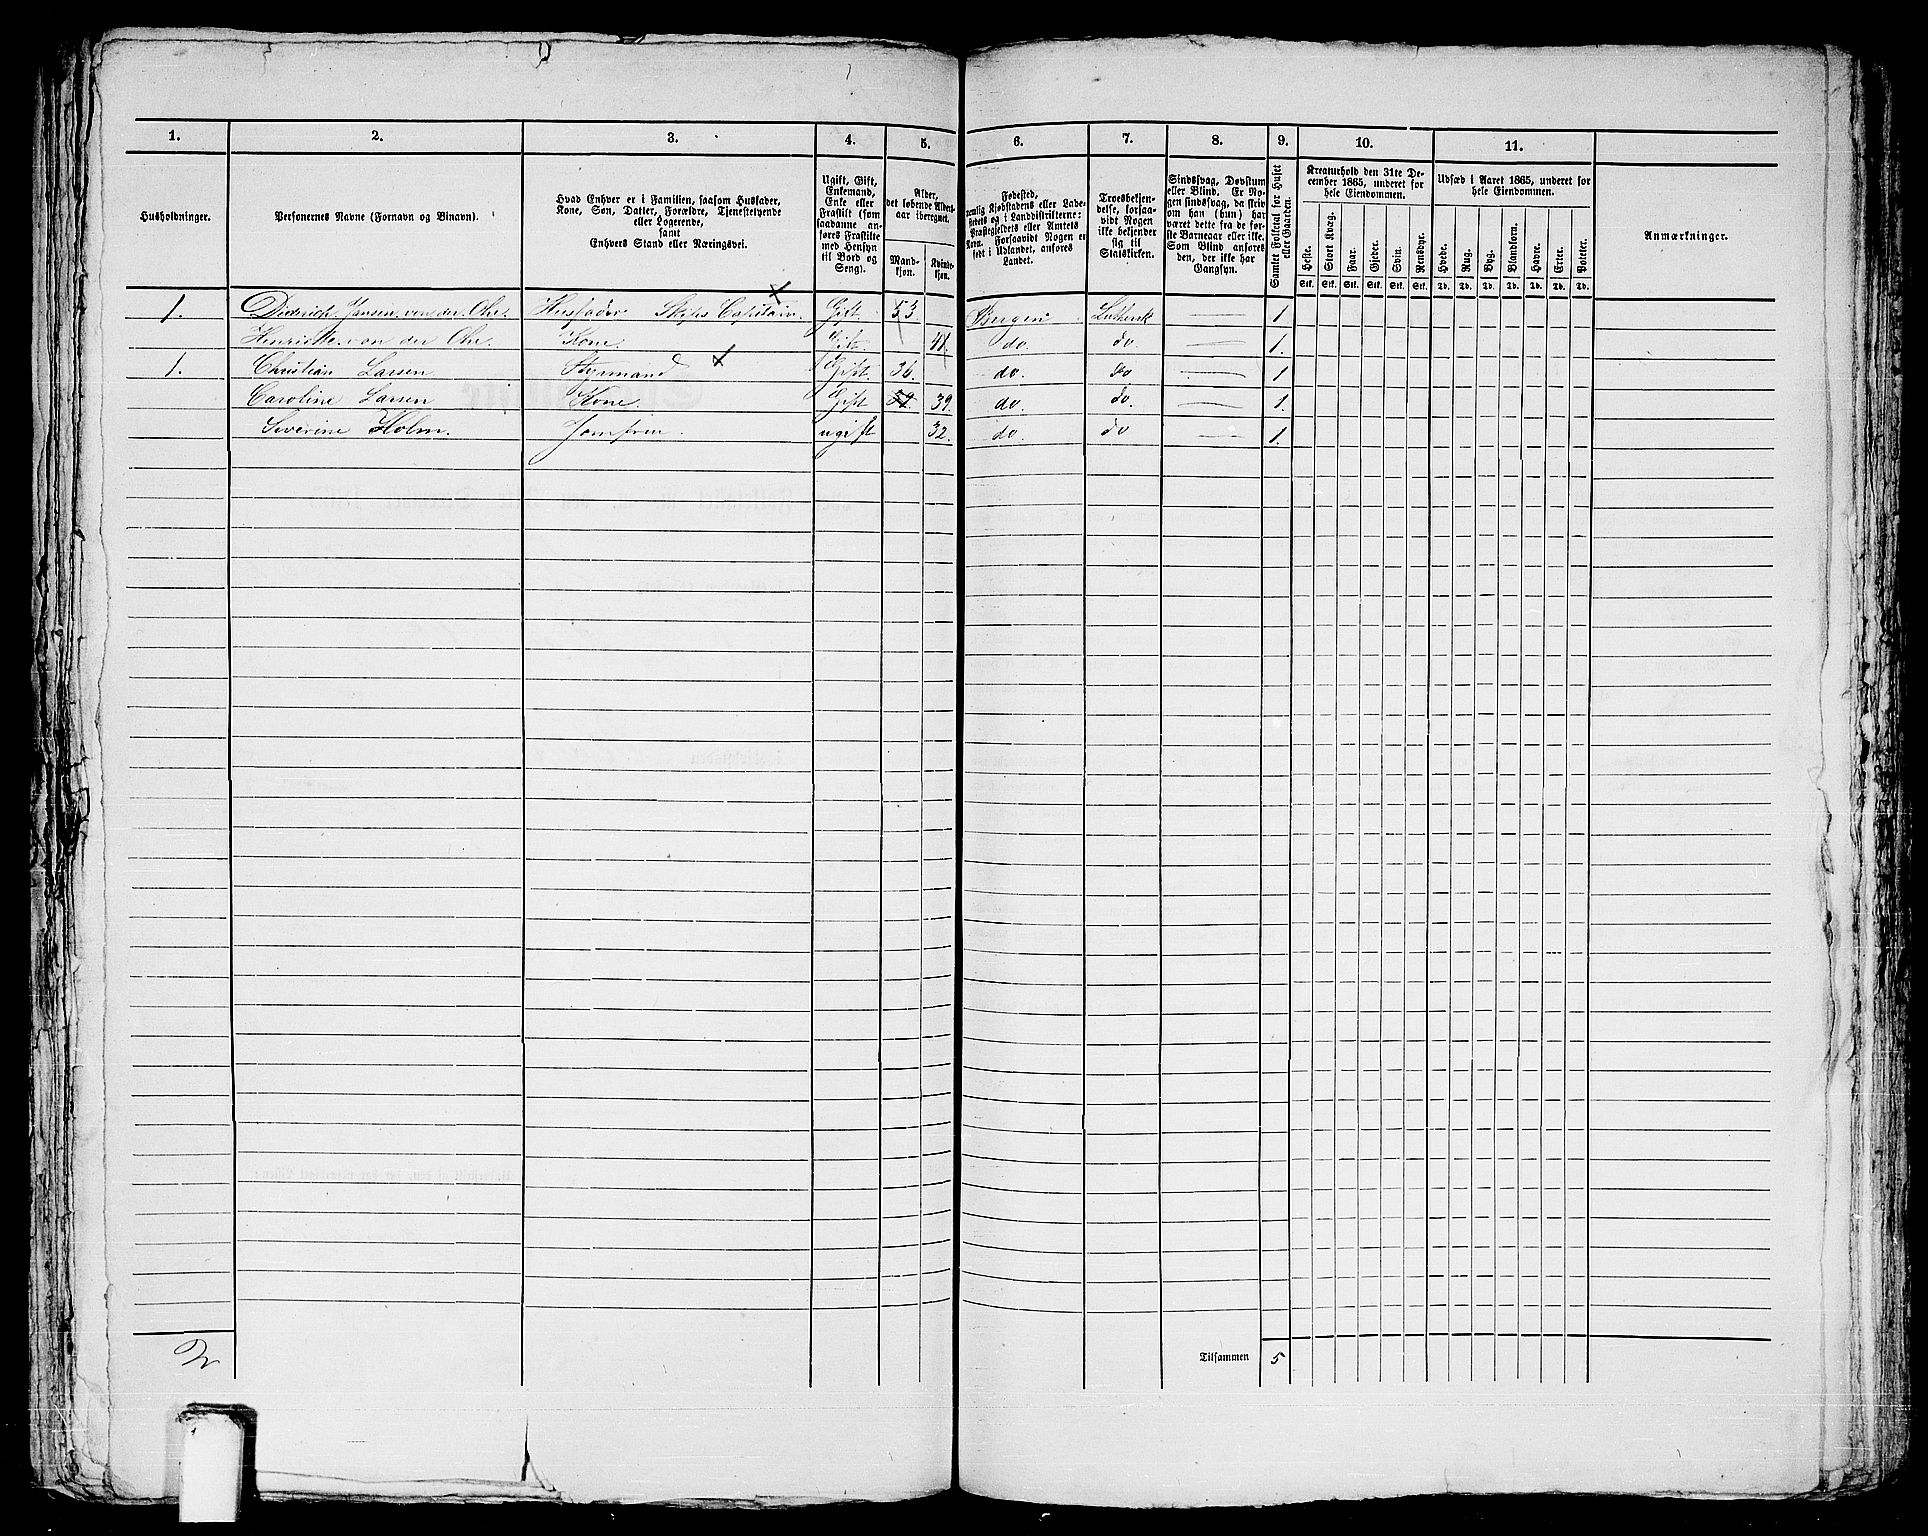 1. 2. 3. 4. 5. 6. 7. 8. 9. 10. 11.
Husholdninger.
Personernes Navne (Fornavn og Binavn).
Hvad Enhver er i Familien, saasom Husfader, Kone, Søn, Datter, Forældre, Tjenestetyende eller Logerende, samt Enhvers Stand eller Næringsvei.
Ugift, Gift, Enkemand, Enke eller Fraskilt (som saadanne anføres Fraskilte med Hensyn til Bord og Seng).
Alder, det løbende Alders-aar iberegnet.
Mand-kjøn. Kvinde-kjøn.
Fødested, nemlig Kjøbstadens eller Ladestedets og i Landdistrikterne: Præstegjeldets eller Amtets Navn. Forsaavidt Nogen er født i Udlandet, anføres Landet.
Troesbekjendelse, forsaavidt Nogen ikke bekjender sig til Statskirken.
Sindssvag, Døvstum eller Blind. Er Nogen sindssvag, da skriv om han (hun) har været dette fra de første Barneaar eller ikke. Som Blind anføres den, der ikke har Gangsyn.
Samlet Folketal for Huset eller Gaarden.
Kreaturhold den 31te December 1865, underet for hele Eiendommen.
Heste. Stort Kvæg. Faar. Gjeder. Svin. Rensdyr.
Stk. Stk. Stk. Stk. Stk. Stk.
Udsæd i Aaret 1865, underet for hele Eiendommen.
Hvede. Rug. Byg. Blandkorn. Havre. Erter. Poteter.
Td. Td. Td. Td. Td. Td. Td.
Anmærkninger.
1. Diderich Jansen von der Ohe. Husfader Skibs Capitain. Gift 53 Bergen Luthersk 1.
Henriette von der Ohe. Kone. Gift. 41. do. do. 1.
1. Christian Larsen Styrmand Gift. 36. do. do 1
Caroline Larsen Kone. Gift 39. do. do. 1.
Severine Holm. Jomfru. ugift 32. do. do 1.
2
Tilsammen 5